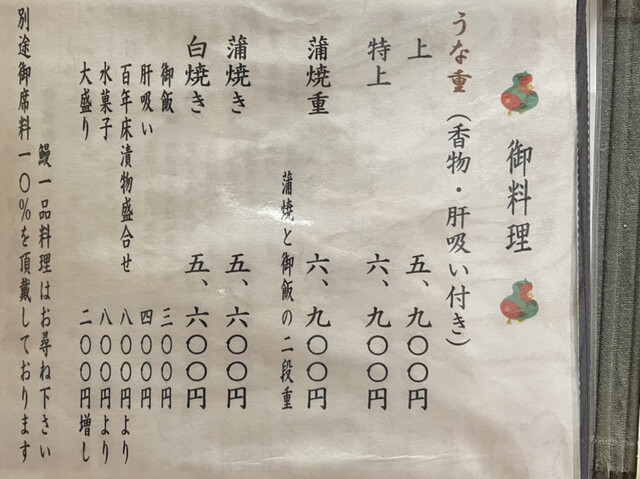 御料理
うな重（香物・肝吸い付き）
上 五、九〇〇円
特上 六、九〇〇円
蒲焼重 六、九〇〇円
蒲焼と御飯の二段重
蒲焼き 五、六〇〇円
白焼き 五、六〇〇円
御飯 三〇〇円
肝吸い 四〇〇円
百年床漬物盛合せ 八〇〇円より
水菓子 八〇〇円より
大盛り 二〇〇円増し
鰻一品料理はお尋ね下さい
別途御席料一〇％を頂戴しております